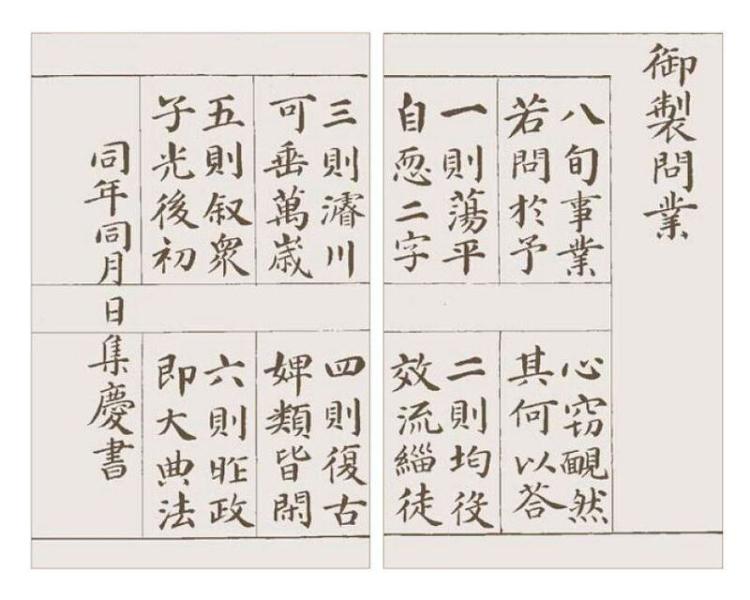 御製問業
八旬事業
心窃靦然
若問於予
其何以荅
一則蕩平
自恧二字
二則均役
效流緇徒
三則濬川
可垂萬歲
四則復古
婢類皆閑
五則叙衆
子光後初
六則昨政
即大典法
同年同月日集慶書